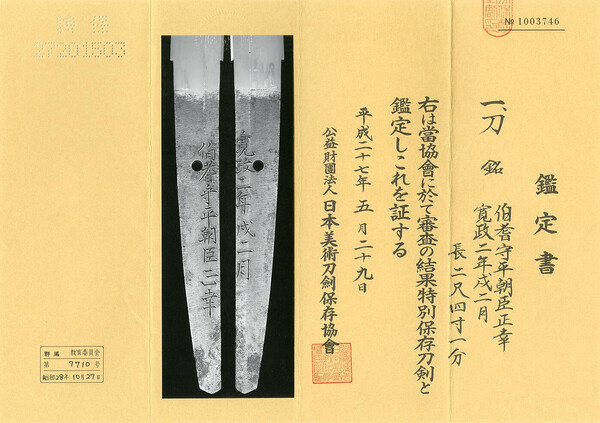 № 1003746
鑑定書
一、刀 銘
伯耆守平朝臣正幸
寛政二年戌二月
長 二尺四寸一分
右は當協會に於て審査の結果特別保存刀劍と
鑑定しこれを証する
平成二十七年 五月二十九日
公益財團法人 日本美術刀劍保存協會
寛政二年戌二月
伯耆守平朝臣正幸
27201503
群馬 教育委員会
第 7710 号
昭和28年10月27日